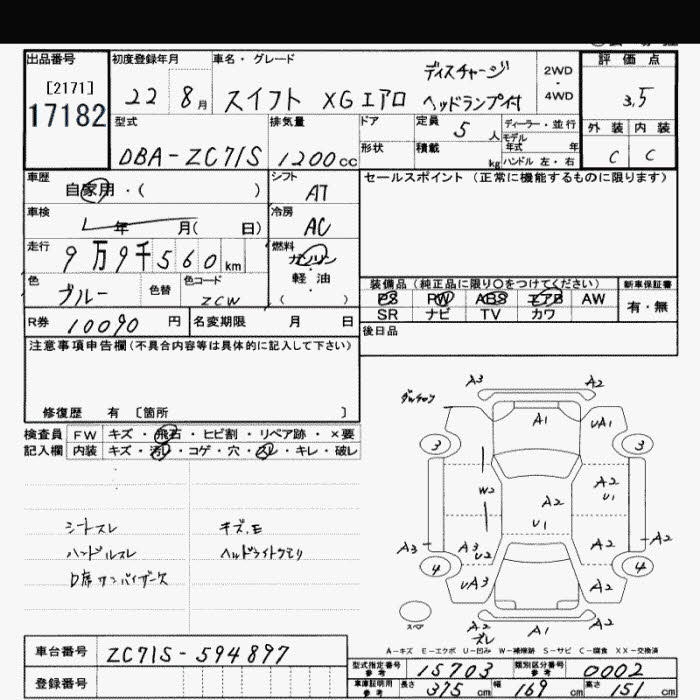 出品番号
[2171]
17182
初度登録年月
22 8月
車名・グレード
スイフト XGエアロ
ディスチャージ
ヘッドランプ付
2WD
・
4WD
評価点
3.5
外装 内装
C C
型式
DBA-ZC71S
排気量
1200cc
ドア
形状
定員 5人
積載 kg
ディーラー・並行
モデル年式 年
ハンドル 左・右
車歴
自家用・( )
シフト
AT
車検
年 月( 日)
冷房
AC
走行
9万9千560km
燃料
ガソリン
軽・油
( )
色
ブルー
色替
色コード
ZCW
R券 10090円
名変期限 月 日
セールスポイント(正常に機能するものに限ります)
装備品(純正品に限り○をつけてください)
PS PW ABS エアB AW
SR ナビ TV カワ
新車保証書
有・無
後日品
注意事項申告欄(不具合内容等は具体的に記入して下さい)
修復歴 有 〔箇所 〕
検査員 FW キズ・飛石・ヒビ割・リペア跡・×要
記入欄 内装 キズ・汚レ・コゲ・穴・スレ・キレ・破レ
シートスレ
ハンドルスレ
キズ.モ
ヘッドライトクモリ
A3 A2
A1
UA1
3 3
W2
A2
U1
A2
U1
A3
A3
U2
A2
A2
4 4
UA3
A2
スペア
A2
スレ
A1
A2
A-キズ E-エクボ U-凹み W-補修跡 S-サビ C-腐食 XX-交換済
車台番号 ZC71S-594897
登録番号
型式指定番号
参考
15703
類別区分番号
参考
0002
車庫証明用
参考
長さ 375cm
幅 169cm
高さ 151cm